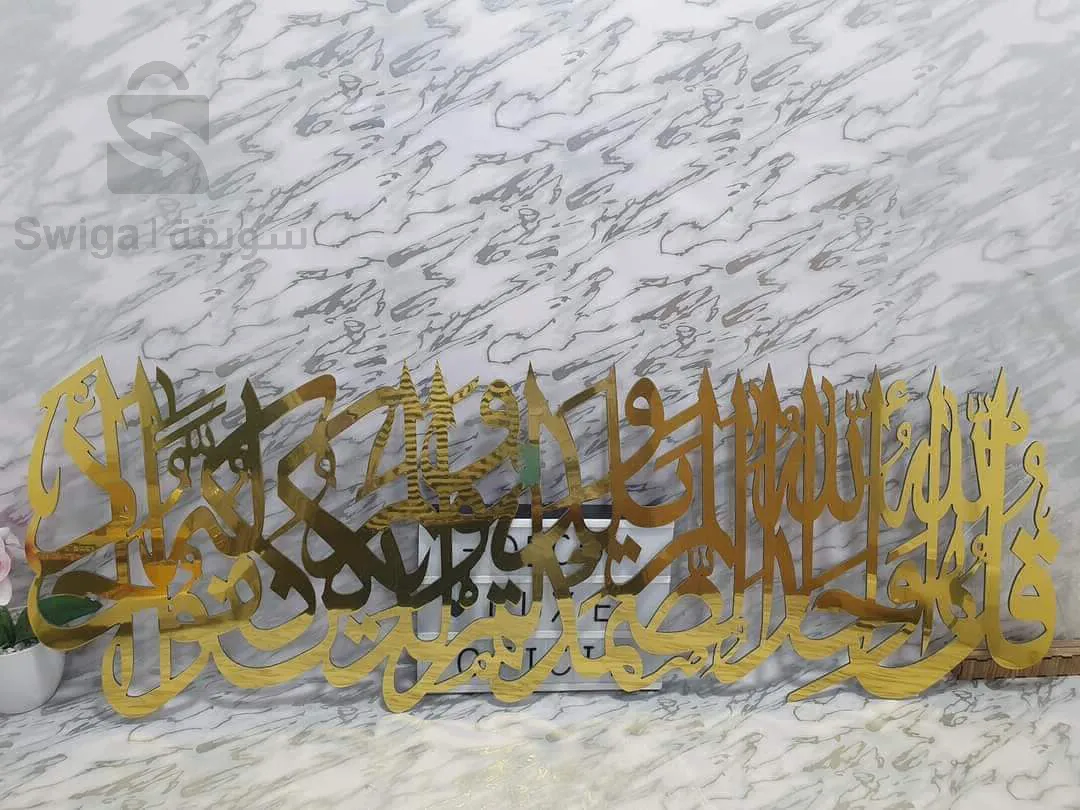 Swiga1 سويقة
قل هو الله أحد الله الصمد لم يلد ولم يولد ولم يكن له كفوا أحد